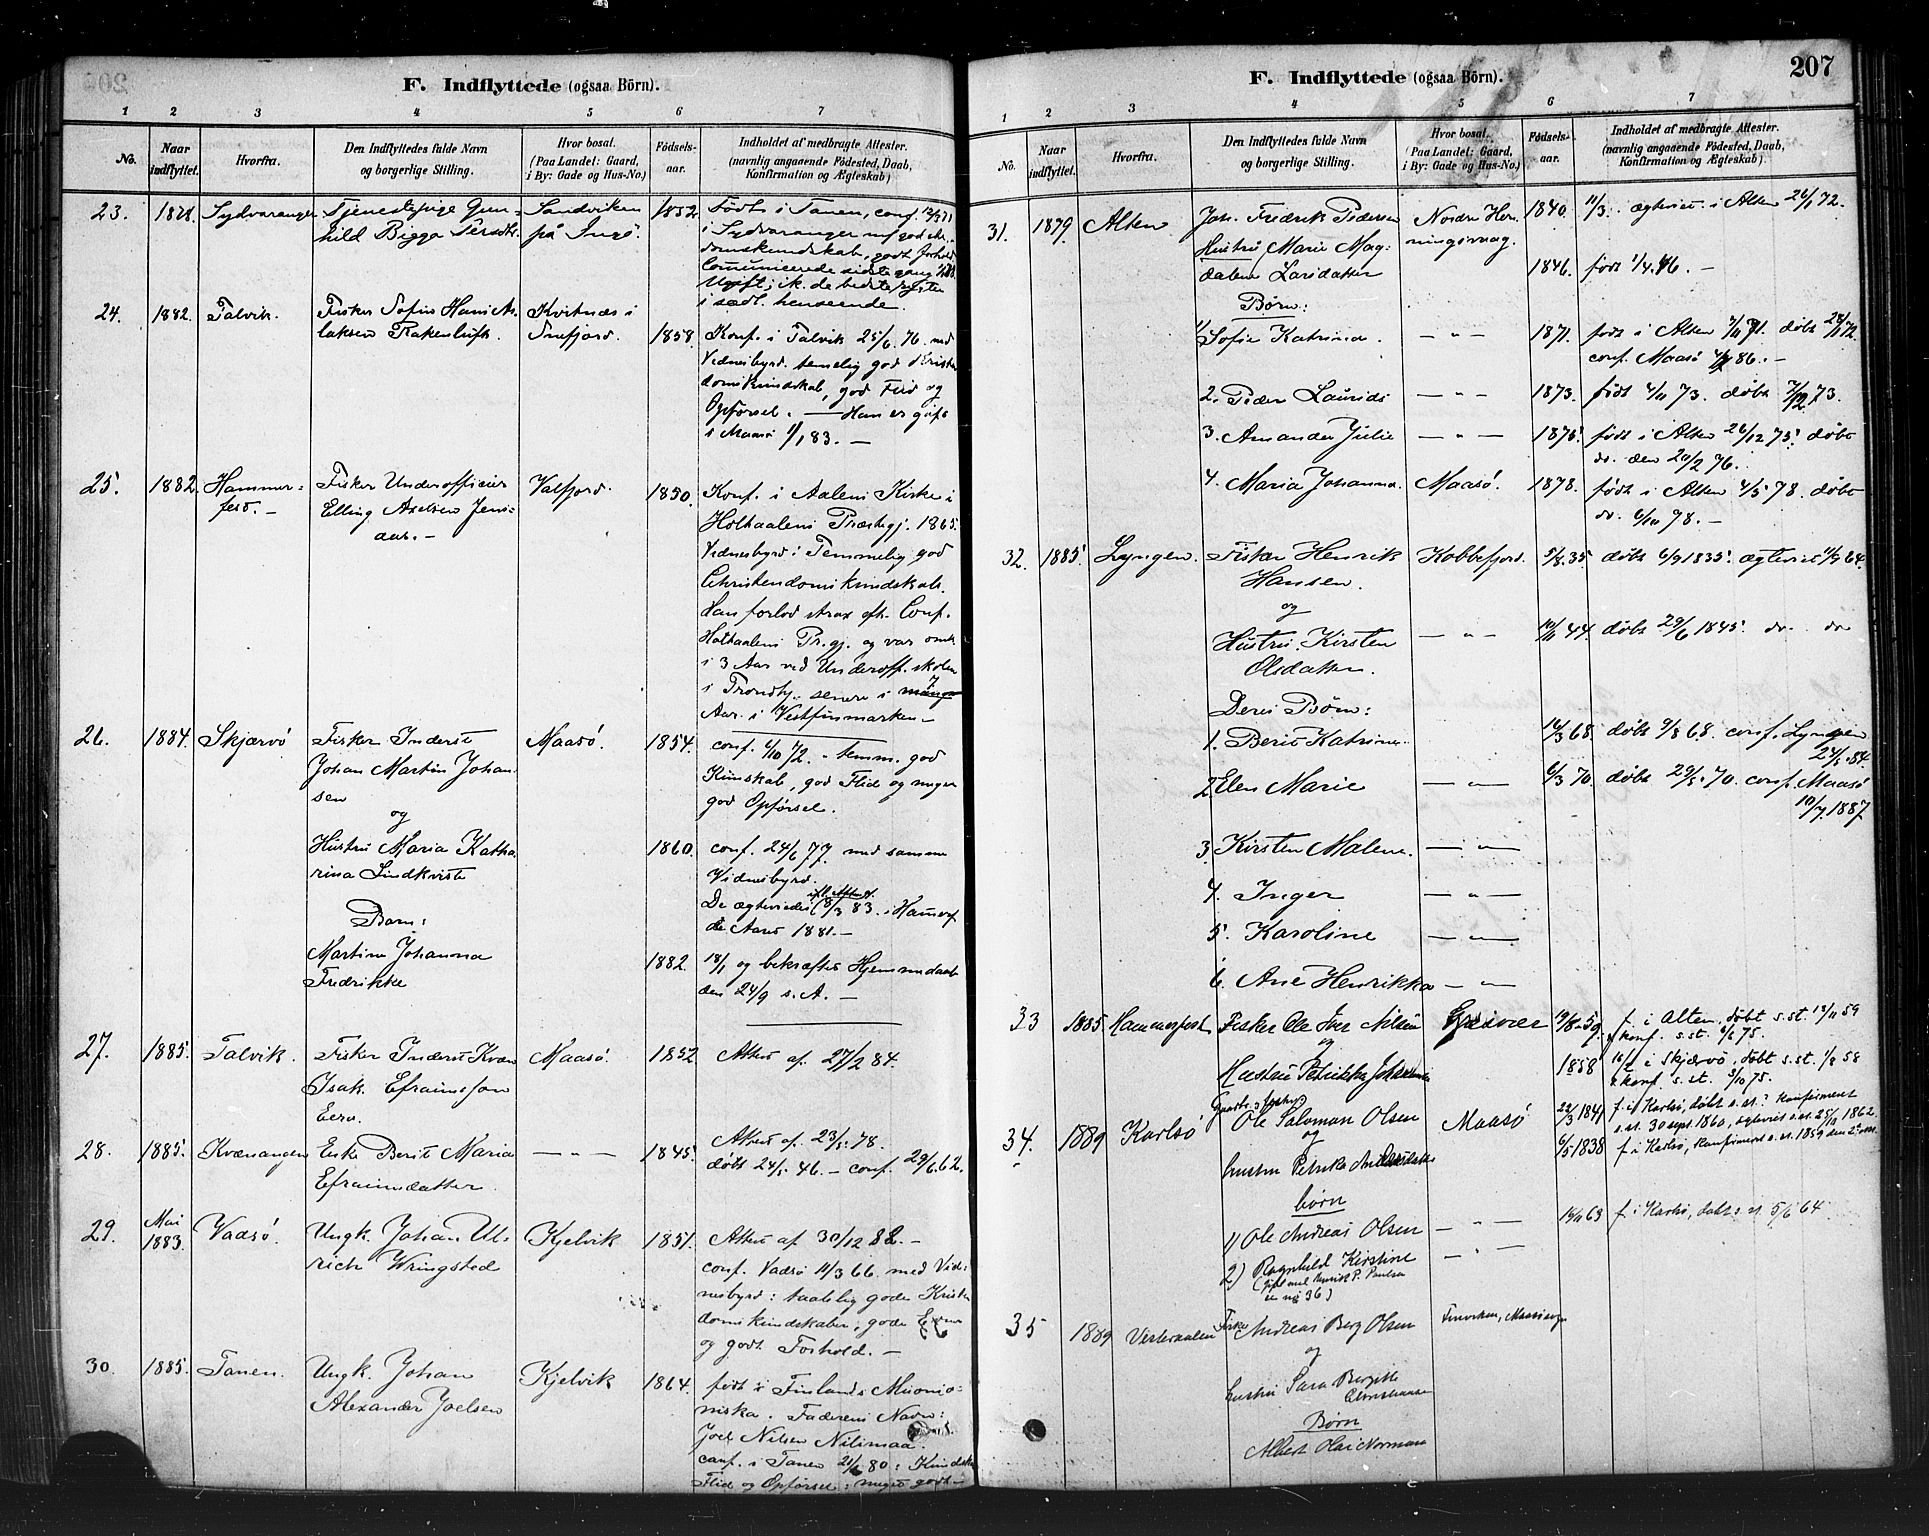 F. Indflyttede (ogsaa Börn).
1 2 3 4 5 6 7
No. Naar indflyttet. Hvorfra. Den Indflyttedes fulde Navn og borgerlige Stilling. Hvor bosat. (Paa Landet: Gaard, i By: Gade og Hus-No.) Födsels-aar. Indholdet af medbragte Attester. (navnlig angaaende Födested, Daab, Konfirmation og Ægteskab)
23. 1878. Sydvaranger Tjenestepige Gun- Sandviken 1852 Født i Tanen, conf.
hild Bigga på Ingö. i Sydvaranger m/ god
domskundskab, godt Forhold
Comunicerede sidste gang
Ugift;
i sædl. henseende.
24. 1882. Talvik. Fisker Sofus Hans As- Kvitnæs i
laksen Rakenluft. Snefjord. 1858. Konf. i Talvik 25/6 76. med
Vidnesbyrd temelig god Christen
domskundskab, god Flid og
Opførsel. — Han er gift
i Maasö 1/1 83. —
25. 1882. Hammer- Fisker Underofficier Valfjord. 1850. Konf. i Aalens Kirke i
fest. — Elling Axelsen Jens- Holtaalens Præstegj. 1865.
aas. — Vidnesbyrd: Temmelig god
Christendomskundskab.
Han forlod strax eft. Conf.
Holtaalens Pr.gj. og var omt.
i 3 Aar ved Underoff. skolen
i Trondhj. senere i 7
Aar i Vestfinmarken —
26. 1884. Skjærvö Fisker Inderst Maasö. 1854. conf. 6/10 72. temm. god
Johan Martin Johan- Kundskab, god Flid og meget
sen god Opførsel.
og
Hustru Maria Katha- 1860. conf. 24/6 77. med samme
rina Lindkvist Vidnesbyrd.
De ægteviedes 8/3 83. i Hamerf.
Barn: Aaret 1881. —
Martine Johanna 1882. 18/1 og bekræftet Hjemmedaab
Fredrikke den 24/9 s. A. —
27. 1885. Talvik. Fisker Inderst Kvæn Maasö. 1852 Attest af 27/2 84.
Isak Efraimsson
Eero.
28. 1885. Kvænangen Enke Berit Maria — " — 1845. Attest af 23/5 78.
Efraimsdatter døbt 24/5 46. — conf. 29/6 62.
29. Mai 1883. Vadsö. Ungk. Johan Ul- Kjelvik 1851. Attest af 30/12 82. —
rich Wringsted conf. Vadsö 11/3 66. med Vid-
nesbyrd: taalelig gode Kristen
domskundskaber, gode Evner
og godt Forhold. —
30. 1885. Tanen. Ungk. Johan Kjelvik 1864. født i Finlands Muonio-
Alexander Joelsen niska. Faderens Navn:
Joel Nilsen Nilimaa.
conf. i Tanen 21/6 80: Kundskab
Flid og Opførsel: meget godt —
207
F. Indflyttede (ogsaa Börn).
1 2 3 4 5 6 7
No. Naar indflyttet. Hvorfra. Den Indflyttedes fulde Navn og borgerlige Stilling. Hvor bosat. (Paa Landet: Gaard, i By: Gade og Hus-No.) Födsels-aar. Indholdet af medbragte Attester. (navnlig angaaende Födested, Daab, Konfirmation og Ægteskab)
31. 1879. Alten Joh. Fredrik Pedersen Nordre Hon- 1840. 11/3. ægteviet i Alten 26/1 72.
Hustru Marie Mag- ningsvaag.
dalene Larsdatter 1846. født 1/4 46. —
Børn:
1/ Sofie Katrina. — " — 1871. født i Alten 7/11 71. døbt 28/1 72.
conf. Maasö 86. —
2. Peder Laurids — " — 1873. født 4/11 73. døbt 7/12 73.
3. Amanda Julie — " — 1875. født i Alten 26/12 75. døbt
do. den 20/2 76.
4. Maria Johanna. Maasö. 1878. født i Alten 4/5 78. døbt
do. 6/10 78. —
32. 1885. Lyngen. Fisker Henrik Kobbefjord. 5/8 35 døbt 6/9 1835. ægteviet 11/9 64.
Hansen.
og
Hustru Kirsten — " — 10/11 44. døbt 29/6 1845. do. do
Olsdatter.
Deres Børn:
1. Berit Katrine. 16/3 68. døbt 9/8 68. conf. Lyngen
24/5 84.
2. Elen Marie — " — 6/3 70. døbt 29/5 70. conf. Maasö
10/7 1887.
3. Kirsten Malene. — " —
4. Inger — " —
5. Karoline — " —
6. Ane Henrikka — " —
33 1885. Hammerfest Fisker Ole Iver Nilsen Gjæsvær 19/8 59. f. i Alten, døbt s. st. 13/11 59
og konf. s. st. 6/6 75.
Hustru Petrikke 1858 16/2 i Skjærvö, døbt s. st. 1/8 58
konf. s. st. 3/10 75.
34. 1889 Karlsö Ole Salomon Olsen Maasö 22/3 1841 f. i Karlsö, døbt s. st. ? konfirmert
og s. st. 30 sept. 1860, ægteviet s. st. 25/10 1862.
hustru Petrike 6/5 1838 f. i Karlsö, konfirmert s. st. 1859
børn
1) Ole Andreas Olsen — " — 14/11 63 f. i Karlsö, døbt s. st. 5/6 64.
2) Ragnhild Kirstine — " —
(gift med Henrik P. Paulsen
se nr 36)
35 1889 Vesteraalen Fisker Andreas Berg Olsen
og
hustru Sara Bergitte
Børn
Albert Olai Norman